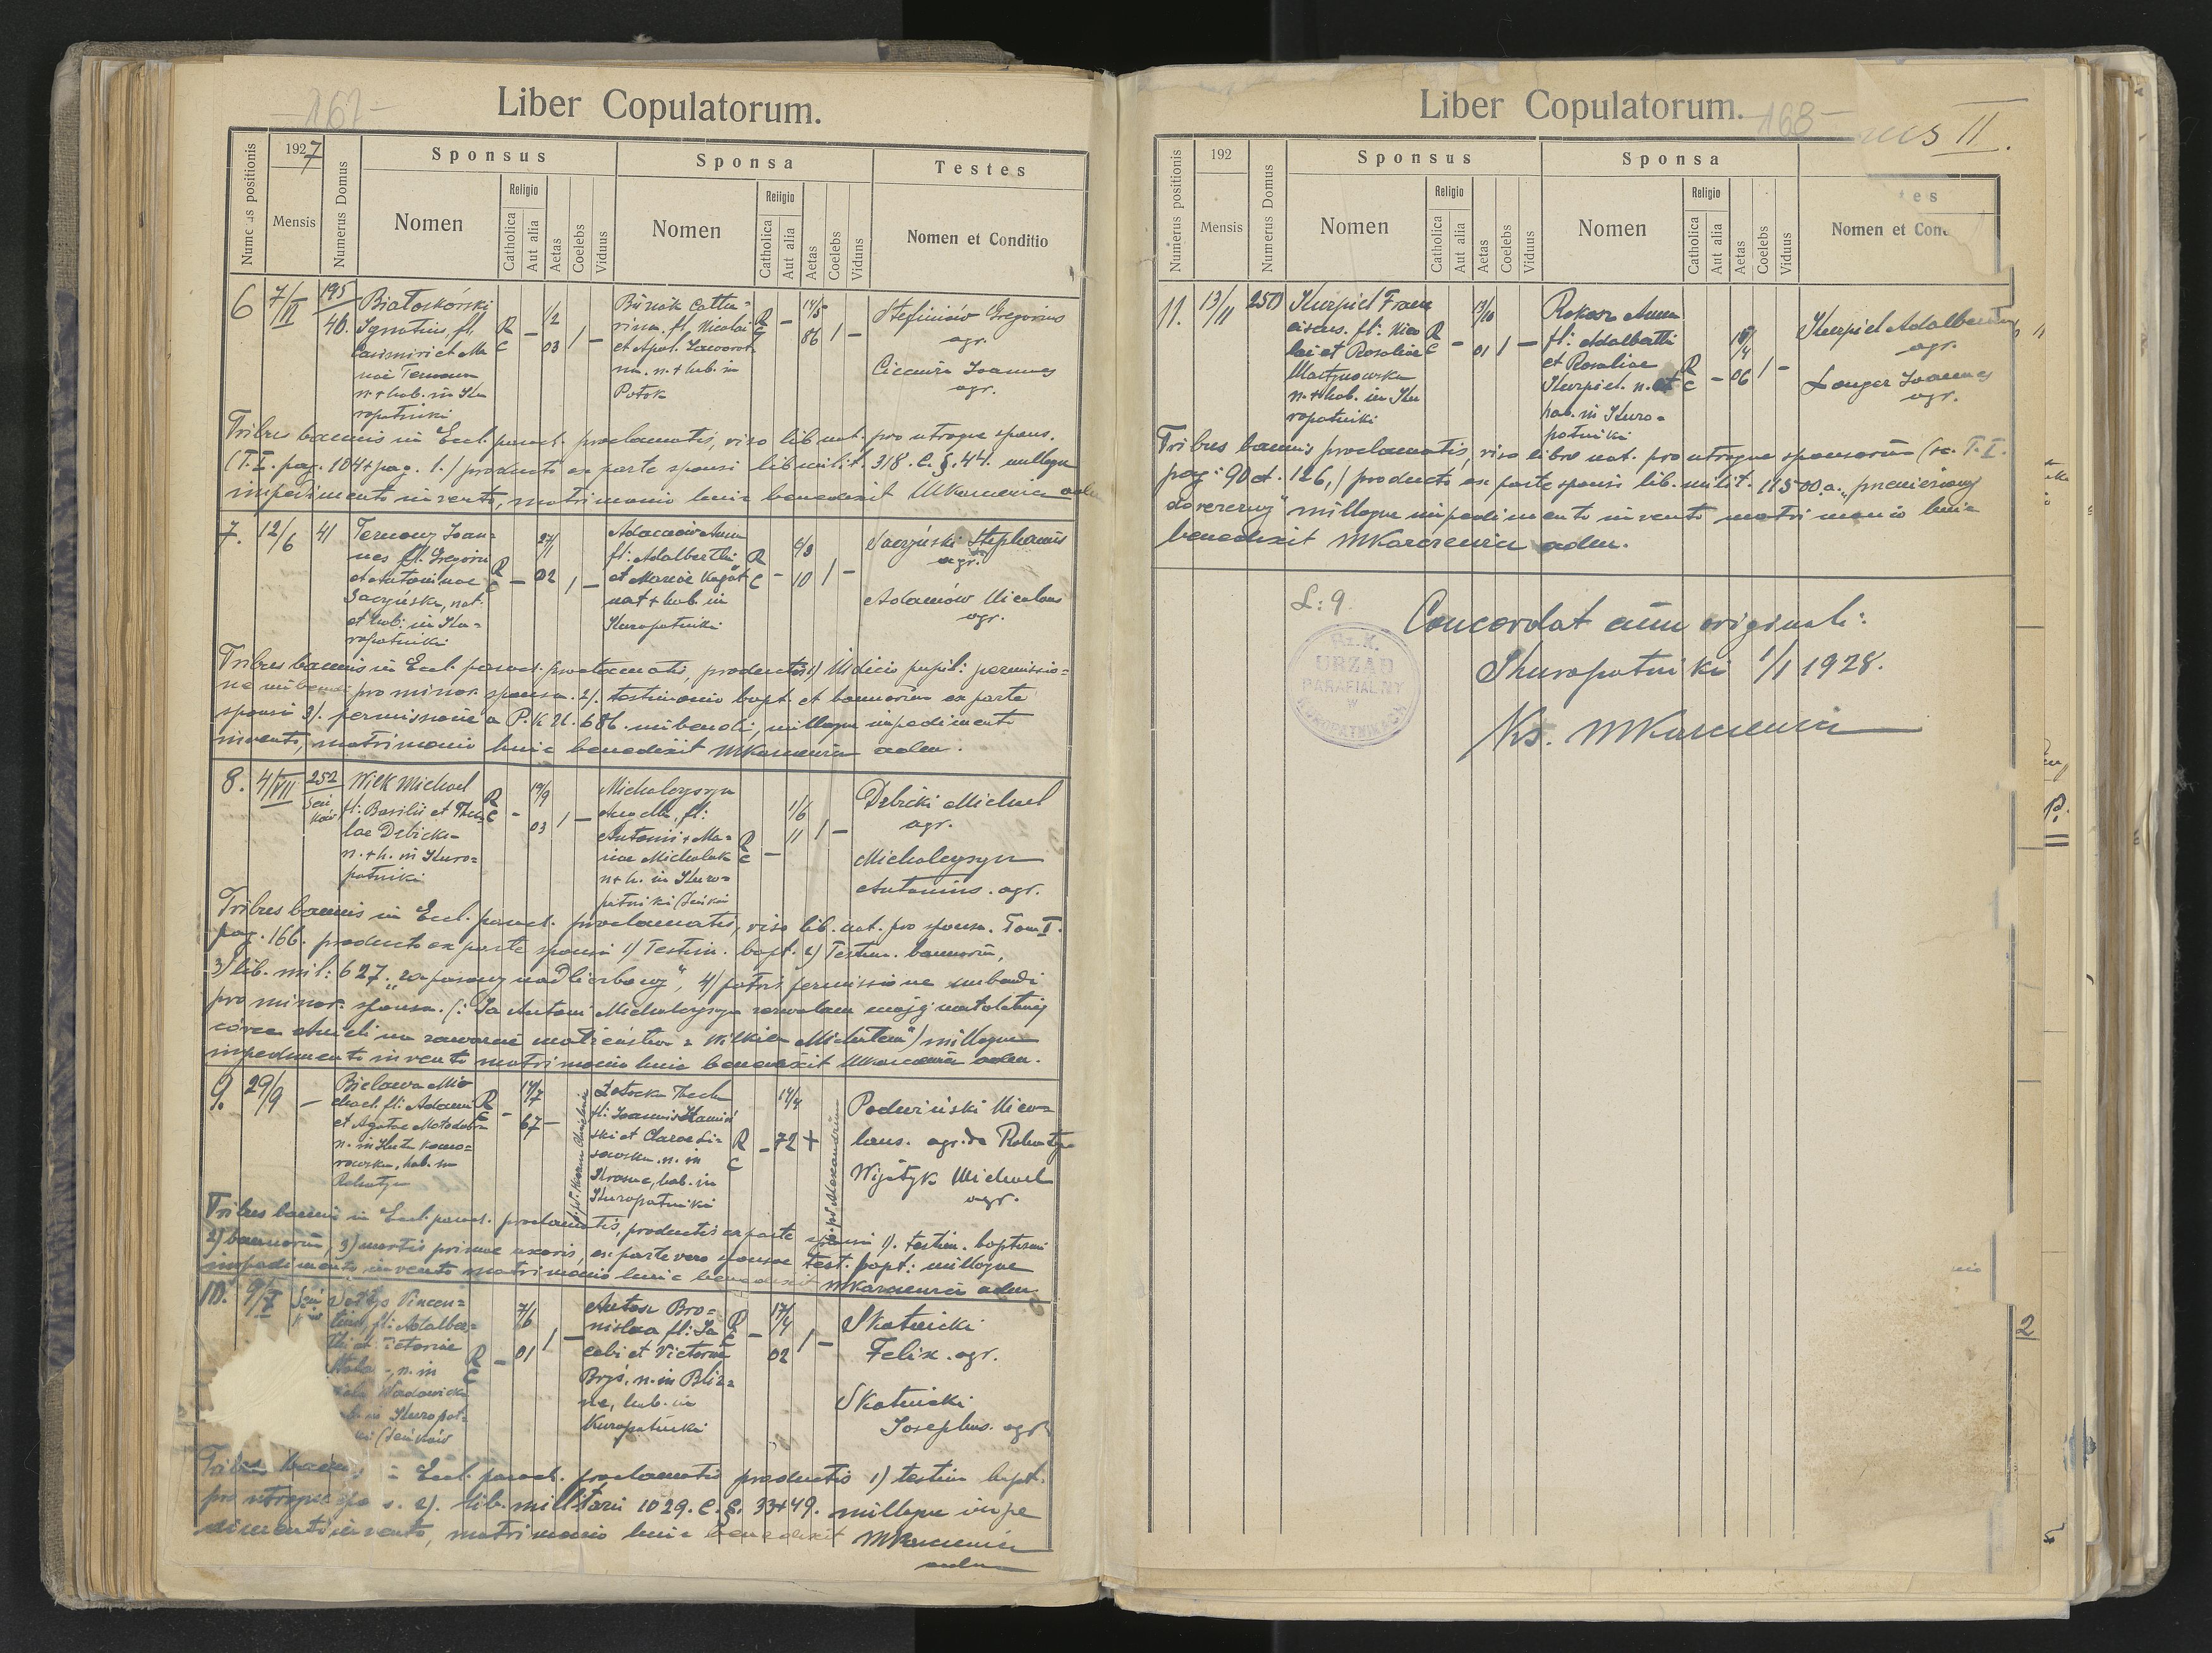 167-
Liber Copulatorum.
1927
Numerus positionis
Mensis
Numerus Domus
Sponsus
Sponsa
Testes
Nomen
Religio
Catholica
Aut alia
Aetas
Coelebs
Viduus
Nomen
Religio
Catholica
Aut alia
Aetas
Coelebs
Viduus
Nomen et Conditio
6
7/II
195
46.
Białoskórski
Ignatius, fl.
Casimiri et
n. + hab. in Ku
ropatniki
R C
—
1/2
03
1 —
Catha=
rina. fl. Nicolai
et Apol.
n. + hab. in
Potok
R C
—
14/5
86
1 —
Gregorius
agr.
Joannes
agr.
Tribus bannis in Eccl. paroch. proclamatis, viso lib. nat. pro utroque spons.
(T. I. pag. 104 + pag. 1.) producto ex parte sponsi lib. milit. 318. C. §. 44. nulloque
impedimento invento, matrimonio huic benedixit MKarczewicz adm
7.
12/6
41
Joan=
nes fl. Gregorii
et Antoninae
Saczyńska, nat.
et hab. in Ku=
ropatniki
R C
—
27/11
02
1 —
Adamów Anna
fl: Adalberthi
et Mariae
nat + hab. in
Kuropatniki
R C
—
10
1 —
Saczyński Stephanus
agr.
Adamów Nicolaus
agr.
Tribus bannis in Eccl. paroch. proclamatis, productis 1) Iudicis pupil: permissio=
ne nubendi pro minor. sponsa. 2). testimonio bapt. et bannorum ex parte
sponsi 3). permissione a P.K.U. 686. nubendi, nulloque impedimento
invento, matrimonio huic benedixit MKarczewicz adm.
8.
4/VII
252
Wilk Michael
fl: Basilii et Thec=
lae Dębicka
n. + h. in Kuro=
patniki
R C
—
19/9
03
1 —
Michalczyszyn
fl:
Antonii + Ma=
riae Michalak
n + h. in Kuro=
patniki
R C
—
1/6
11
1 —
Dębicki Michael
agr.
Michalczyszyn
Antonius. agr.
Tribus bannis in Eccl. paroch. proclamatis, viso lib. nat. pro sponsa. Tom I.
pag. 166. producto ex parte sponsi 1) Testim. bapt. 2) Testim. bannorum,
3) lib. mil: 627. „zapasowy nadliczbowy", 4) patris permissione nubendi
pro minor. sponsa. (: Ja Antoni Michalczyszyn zezwalam mojej małoletniej
córce Anieli na zawarcie małżeństwa z Wilkiem Michałem") nulloque
impedimento invento matrimonio huic benedixit MKarczewicz adm.
9.
29/9
—
Bielawa Mi
chael. fl: Adami
et Agatae
n. in Huta Komo=
rowska, hab. in
Rohatyn
R C
—
14/7
67 —
Thecla
fl: Joannis
ski et Clarae
n. in
Krasne, hab. in
Kuropatniki
R C
—
14/4
72 +
Podwiński Nico=
laus. agr. de Rohatyn
Wijatyk Michael
agr.
Tribus bannis in Eccl. paroch. proclamatis, productis ex parte sponsi 1). testim. baptismi
2) bannorum, 3) mortis primae uxoris, ex parte vero sponsae test. bapt: nulloque
impedimento invento matrimonio huic benedixit MKarczewicz adm
10.
9/X
Vincen=
tius, fl: Adalber=
thi et Victoriae
n. in
Wadowicka
Kuropat=
R C
—
7/6
01
1 —
Antosz Bro=
nislaa fl: Ja
cobi et Victoriae
Bryś, n. in Bliz=
ne, hab. in
Kuropatniki
R C
—
17/4
02
1 —
Skotnicki
Felix. agr.
Skotnicki
Josephus. agr.
Tribus bannis in Eccl. paroch. proclamatis productis 1) testim. bapt.
pro utroque 2). lib. militari 1029. C. §. 33+49. nulloque impe
dimento invento, matrimonio huic benedixit MKarczewicz
adm
168-
II.
Liber Copulatorum.
192
Numerus positionis
Mensis
Numerus Domus
Sponsus
Sponsa
es
Nomen
Religio
Catholica
Aut alia
Aetas
Coelebs
Viduus
Nomen
Religio
Catholica
Aut alia
Aetas
Coelebs
Viduus
Nomen et Con
11.
13/11
Kurpiel Fran
ciscus. fl: Nico
lai et Rosaliae
Martynowska
n. + hab. in Ku
ropatniki
R C
—
13/10
01
1 —
Rokosz Anna
fl: Adalberthi
et Rosaliae
Kurpiel. n. et
hab. in Kuro=
patniki
R C
—
18/4
06
1 —
Kurpiel Adalbertus
agr.
Langer Joannes
agr.
Tribus bannis proclamatis, viso libro nat. pro utroque sponsorum (sc. T. I.
pag: 90 et. 126,) producto ex parte sponsi lib. milit. 11500. a. „przeniesiony
do rezerwy" nulloque impedimento invento matrimonio huic
benedixit MKarczewicz adm.
L: 9.
Concordat cum originali:
Kuropatniki 1/1 1928.
Ks. MKarczewicz
Rz. K.
URZĄD
PARAFIALNY
W
KUROPATNIKACH
2